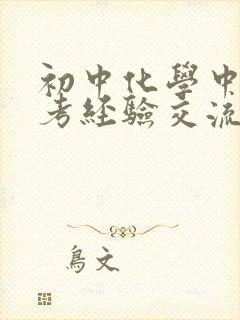 初中化學中
考經驗交流
鳥文